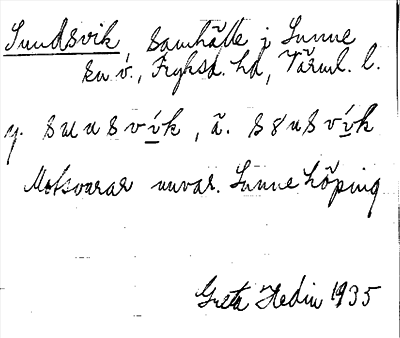 Sundsvik, samhälle i Sunne
sn v., Fryksd. hd, Värml. l.
y. sunsvi̱k, ä. sunsvi̱k
Motsvarar nuvar. Sunne köping
Greta Hedin 1935